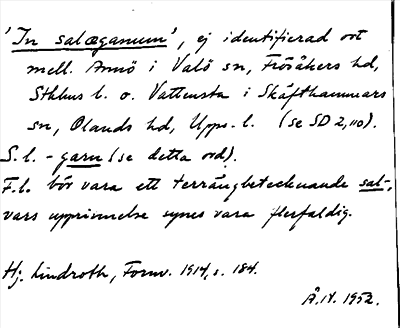 'In salæganum', ej identifierad ort
mell. Annö i Valö sn, Frösåkers hd,
Sthlms l. o. Vattensta i Skäfthammars
sn, Olands hd, Upps. l. (se SD 2,110).
S. l. - garn (se detta ord).
F.l. bör vara ett terrängbetecknande sal-,
vars upprinnelse synes vara flerfaldig.
Hj. Lindroth, Fornv. 1914, s. 184.
Å.IV. 1952.